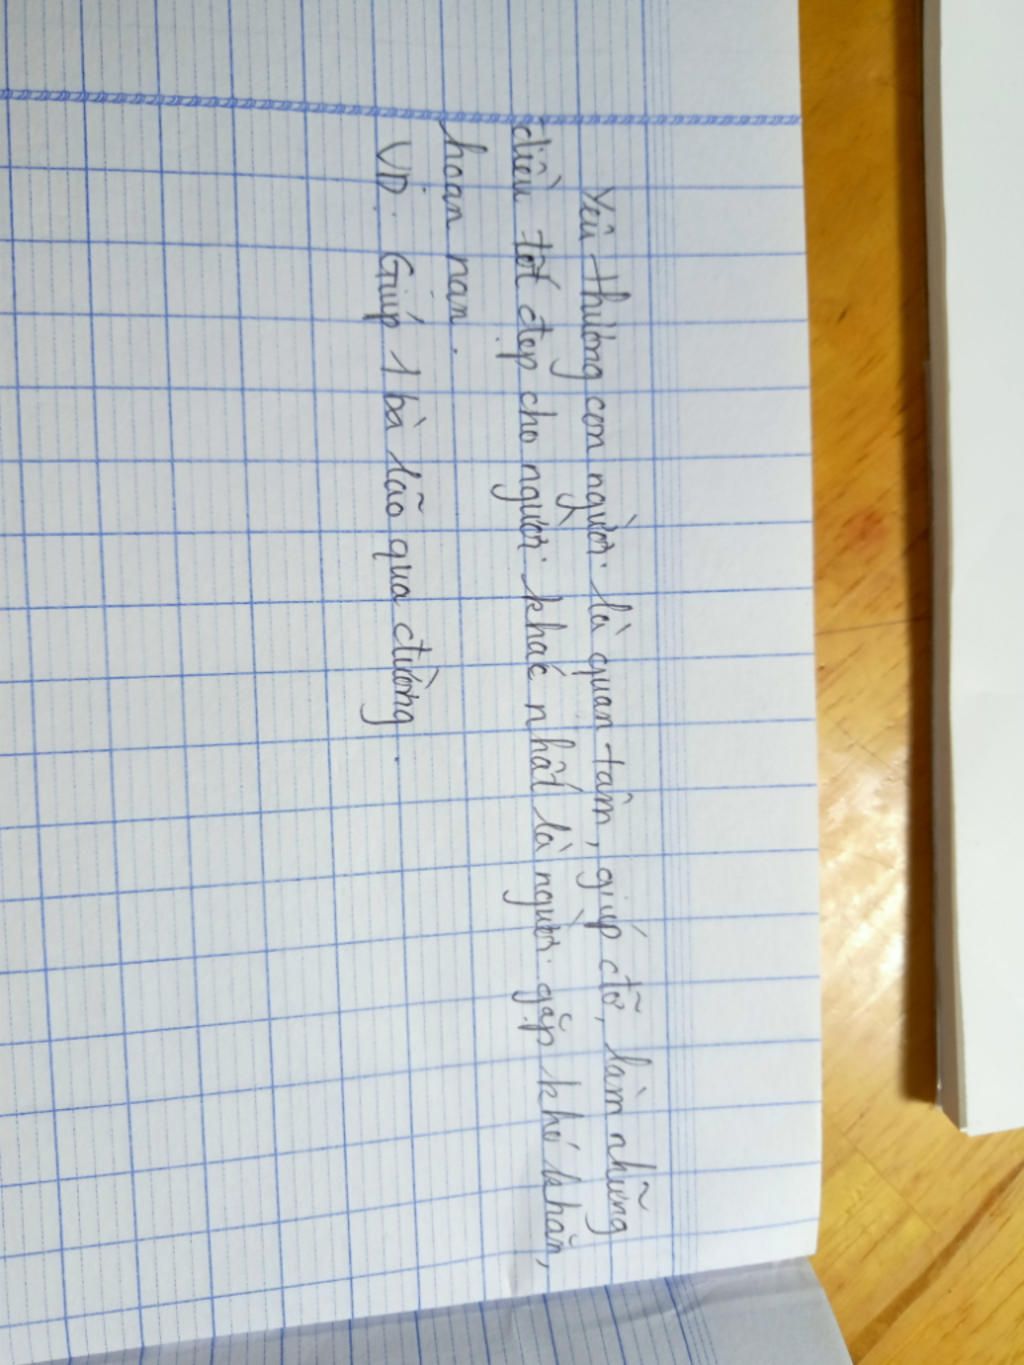 Yêu thương con người là quan tâm, giúp đỡ, làm những
điều tốt đẹp cho người khác nhất là người gặp khó khăn,
hoạn nạn.
VD: Giúp 1 bà lão qua đường.